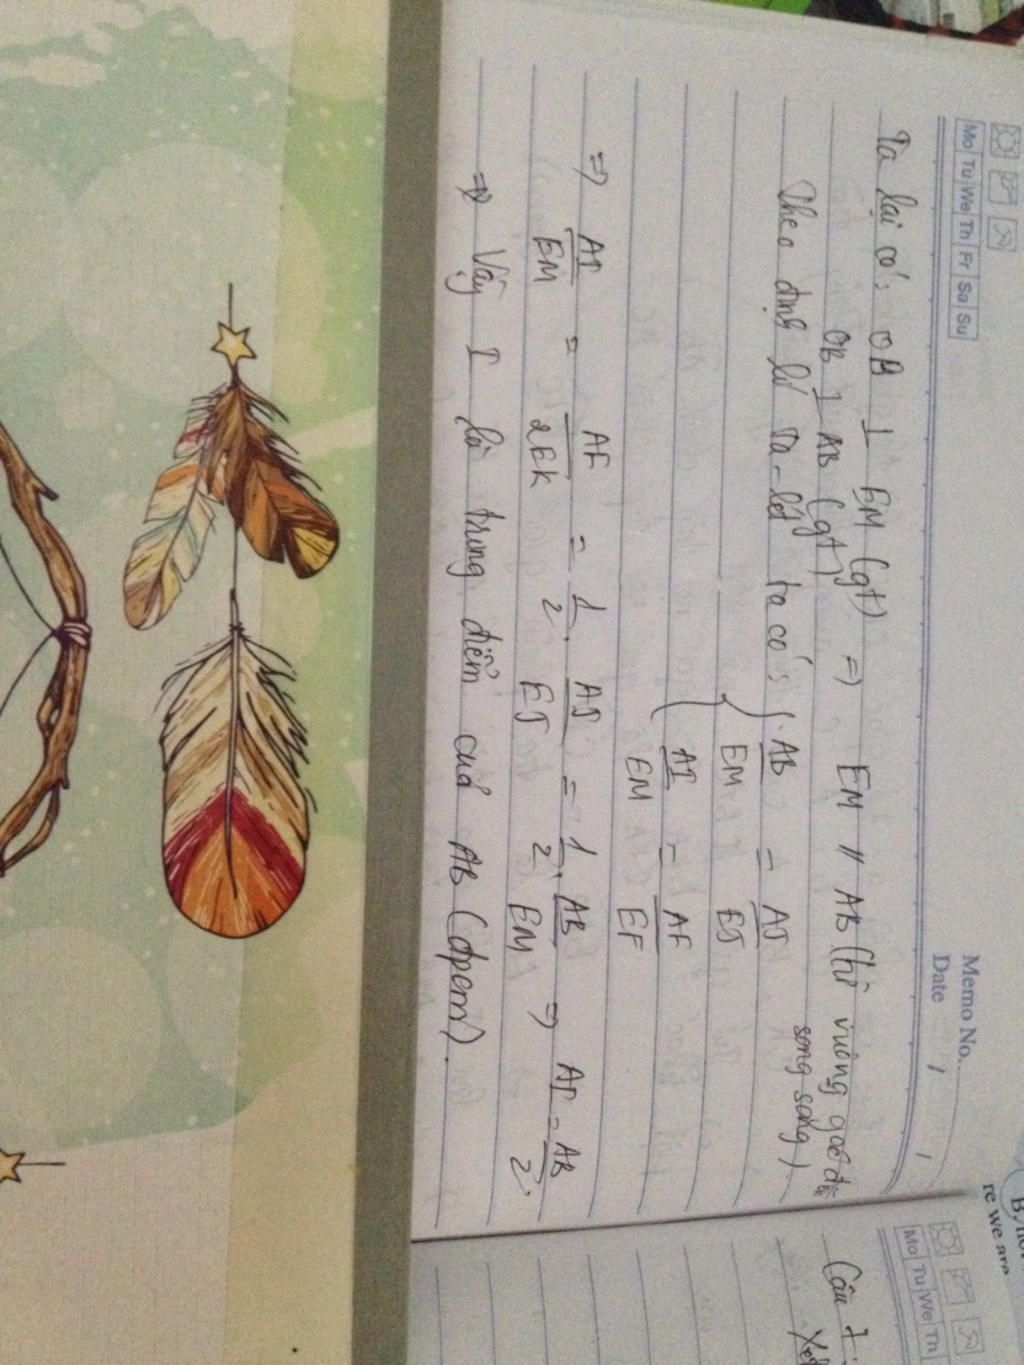 Memo No.
Mo Tu We Th Fr Sa Su
Date / /
Ta lại có: OB ⊥ EM (gt) => EM // AB (từ vuông góc đến song song)
OB ⊥ AB (gt)
Theo định lí Ta-lét ta có: { AB/EM = AJ/EJ
{ AI/EM = AF/EF
=> AI/EM = AF/2EK = 1/2 . AJ/EJ = 1/2 . AB/EM => AI = AB/2 .
=> Vậy I là trung điểm của AB (đpcm).
re we are
Mo Tu We Th
Câu